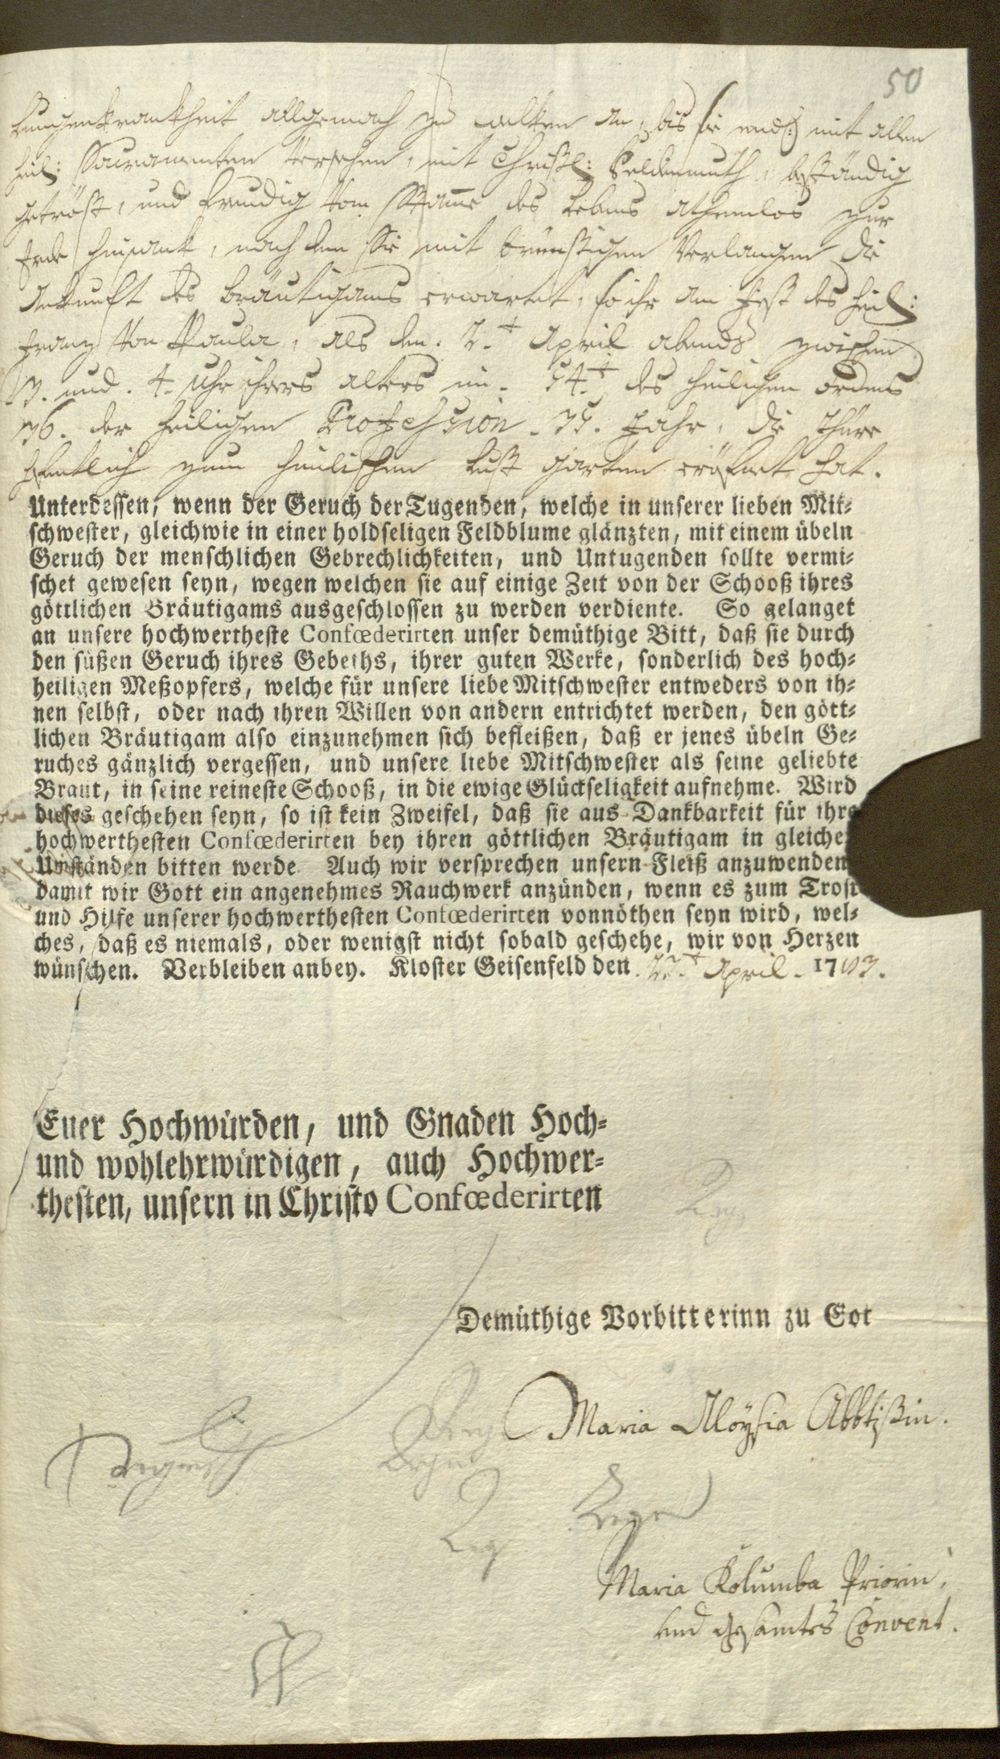 50
Lungenkrankheit allgemach zu welken an, bis sie endl: mit allen
heil: Sacramenten versehen, mit Christl: Heldenmuth, beständig
getröst, und freudig vom Stamme des Lebens athemlos zur
Erde hinsank, nachdem Sie mit brünstigen Verlangen die
Ankunft des Bräutigams erwartet, so ihr am Fest des heil:
Franz von Paula, als den 2.t April abends zwischen
3. und 4. Uhr ihres alters im 54.t des heiligen ordens
36. der heiligen Profession 35. Jahr, die thüre
hofentlich zum himlischen Lust garten eröfnet hat.
Unterdessen, wenn der Geruch der Tugenden, welche in unserer lieben Mit-
schwester, gleichwie in einer holdseligen Feldblume glänzten, mit einem übeln
Geruch der menschlichen Gebrechlichkeiten, und Untugenden sollte vermi-
schet gewesen seyn, wegen welchen sie auf einige Zeit von der Schooß ihres
göttlichen Bräutigams ausgeschlossen zu werden verdiente. So gelanget
an unsere hochwertheste Confœderirten unser demüthige Bitt, daß sie durch
den süßen Geruch ihres Gebeths, ihrer guten Werke, sonderlich des hoch-
heiligen Meßopfers, welche für unsere liebe Mitschwester entweders von ih-
nen selbst, oder nach ihren Willen von andern entrichtet werden, den gött-
lichen Bräutigam also einzunehmen sich befleißen, daß er jenes übeln Ge-
ruches gänzlich vergessen, und unsere liebe Mitschwester als seine geliebte
Braut, in seine reineste Schooß, in die ewige Glückseligkeit aufnehme. Wird
dieses geschehen seyn, so ist kein Zweifel, daß sie aus Dankbarkeit für ihre
hochwerthesten Confœderirten bey ihren göttlichen Bräutigam in gleichen
Umständen bitten werde. Auch wir versprechen unsern Fleiß anzuwenden
damit wir Gott ein angenehmes Rauchwerk anzünden, wenn es zum Trost
und Hilfe unserer hochwerthesten Confœderirten vonnöthen seyn wird, wel-
ches, daß es niemals, oder wenigst nicht sobald geschehe, wir von Herzen
wünschen. Verbleiben anbey. Kloster Geisenfeld den April. 17
Euer Hochwürden, und Gnaden Hoch-
und wohlehrwürdigen, auch Hochwer-
thesten, unsern in Christo Confœderirten
Demüthige Vorbitterinn zu Got
Maria Aloÿsia Abbtißin.
Maria Kolumba Priorin,
und gesamtes Convent.